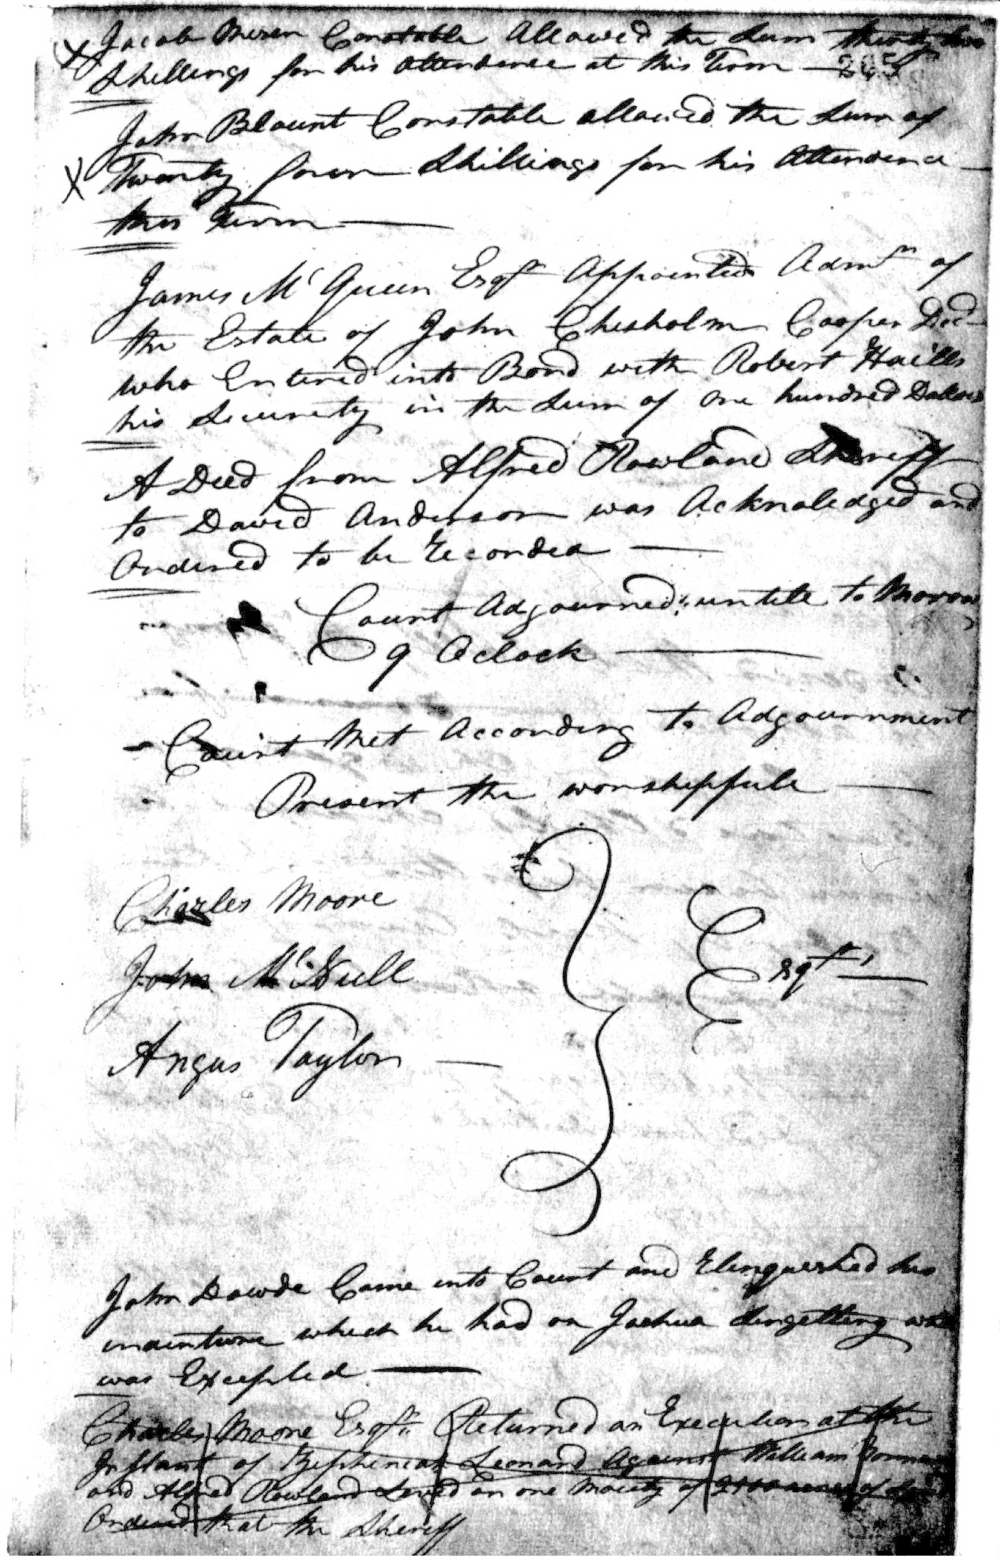 Jacob Mercer Constable Allowed the Sum thirty two
Shillings for his Attendence at this Term — 265
John Blount Constable allowed the Sum of
Twenty four Shillings for his Attendence —
this Term —
James McQueen Esqr Appointed Admr of
the Estate of John Chisholm Cooper Decd
who Entered into Bond with Robert Haills
his Security in the Sum of one hundred Dollars
A Deed from Alfred Rowland Sheriff
to David Anderson was Acknoledged and
Ordered to be Recorded —
Court Adjourned untile to Morow
9 Oclock —
Court Met According to Adgournment
Present the worshipfule —
Charles Moore
John McNeill
Angus Taylor —
Esqrs —
John Dowde Came into Court and Relinquished his
which he had on Joshua and
was Excepted —
Charles Moore Esqr Returned an Execution at the
Instant of Leonard Against William
and Alfred Rowland Leved on one Moiety of acres of
Ordered that the Sheriff